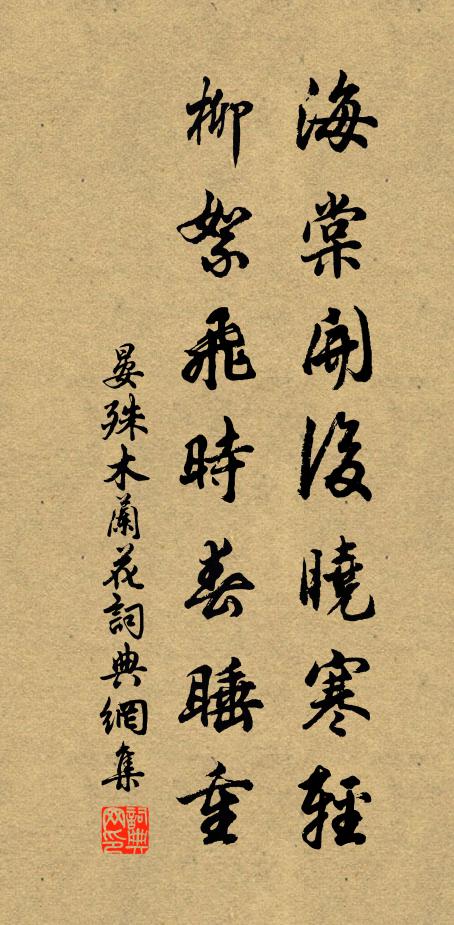 海棠開後曉寒輕
柳絮飛時春睡重
晏殊木蘭花詞典網集
詞典網印